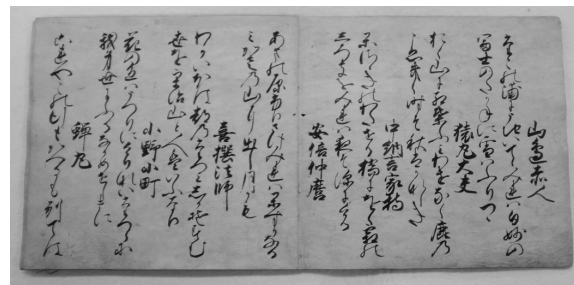 山邊赤人
たこの浦にうち出てみれは白妙の
冨士のたかねに雪はふりつゝ
猿丸大夫
おく山に紅葉ふみわけなく鹿の
こゑきく時そ秋はかなしき
中納言家持
かさゝきのわたせる橋にをく霜の
しろきをみれは夜そ深にける
安倍仲麿
あまの原ふりさけみれはかすかなる
みかさの山に出し月かも
喜撰法師
わかいほは都のたつみしかそすむ
世をうち山と人はいふ也
小野小町
花の色はうつりにけりないたつらに
我身世にふるなかめせしまに
蝉丸
これやこの行もかへるも別ては